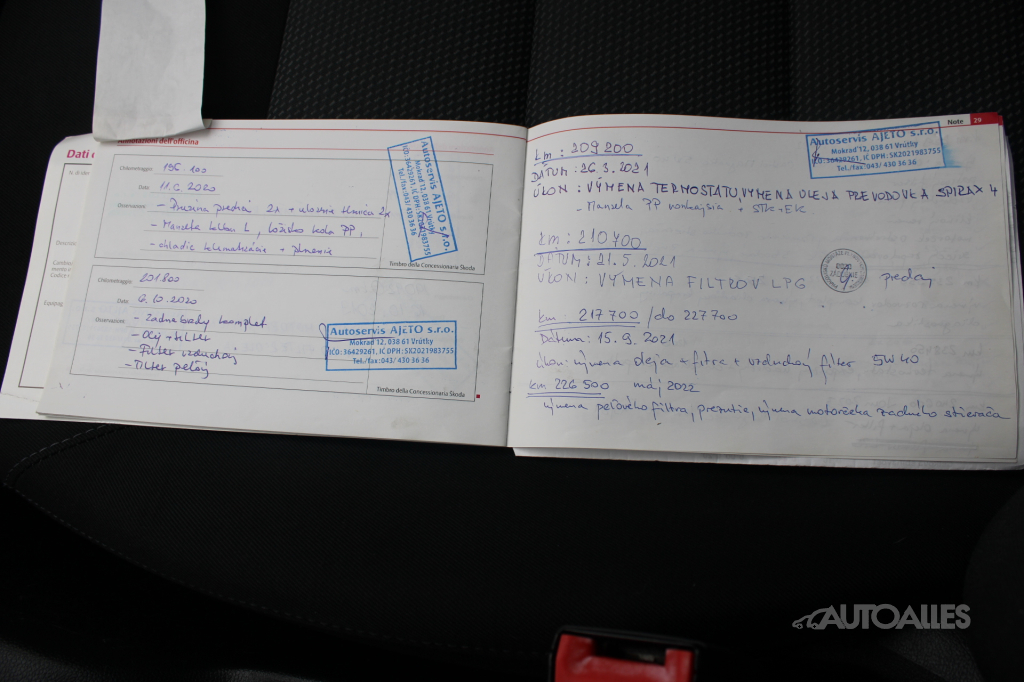 Dati
Annotazioni dell'officina
Chilometraggio: 195 100
Data: 11.6. 2020
Osservazioni: - Pružina predná 2x + 2x
- Manžeta L, ložisko kola PP,
- chladič klimatizácie + plnenie
Autoservis AJETO s.r.o.
Mokraď 12, 038 61 Vrútky
IČO: 36429261, IČ DPH: SK2021983755
Tel./fax:043/ 430 36 36
Timbro della Concessionaria Škoda
Chilometraggio: 201.800
Data: 6.10.2020
Osservazioni: - Zadné brzdy komplet
- Olej + filter
- Filter vzduchový
- Filter peľový
Autoservis AJETO s.r.o.
Mokraď 12, 038 61 Vrútky
IČO: 36429261, IČ DPH: SK2021983755
Tel./fax:043/ 430 36 36
Timbro della Concessionaria Škoda
Note 29
Autoservis AJETO s.r.o.
Mokraď 12, 038 61 Vrútky
IČO: 36429261, IČ DPH: SK2021983755
Tel./fax:043/ 430 36 36
km : 209200
DÁTUM : 26.3.2021
ÚKON : VÝMENA TERMOSTATU, VÝMENA OLEJA PREVODOVKA SPIRAX 4
- Manžeta PP vonkajšia + STK + EK
km : 210400
DÁTUM : 21.5.2021
ÚKON : VÝMENA FILTROV LPG predaj
km : 217 700 / do 227 700
Dátum : 15.9.2021
úkon: výmena oleja + filtra + vzduchový filter 5W40
km 226 500 máj 2022
výmena peľového filtra, prezutie, výmena motorčeka zadného stierača
AUTOALLES